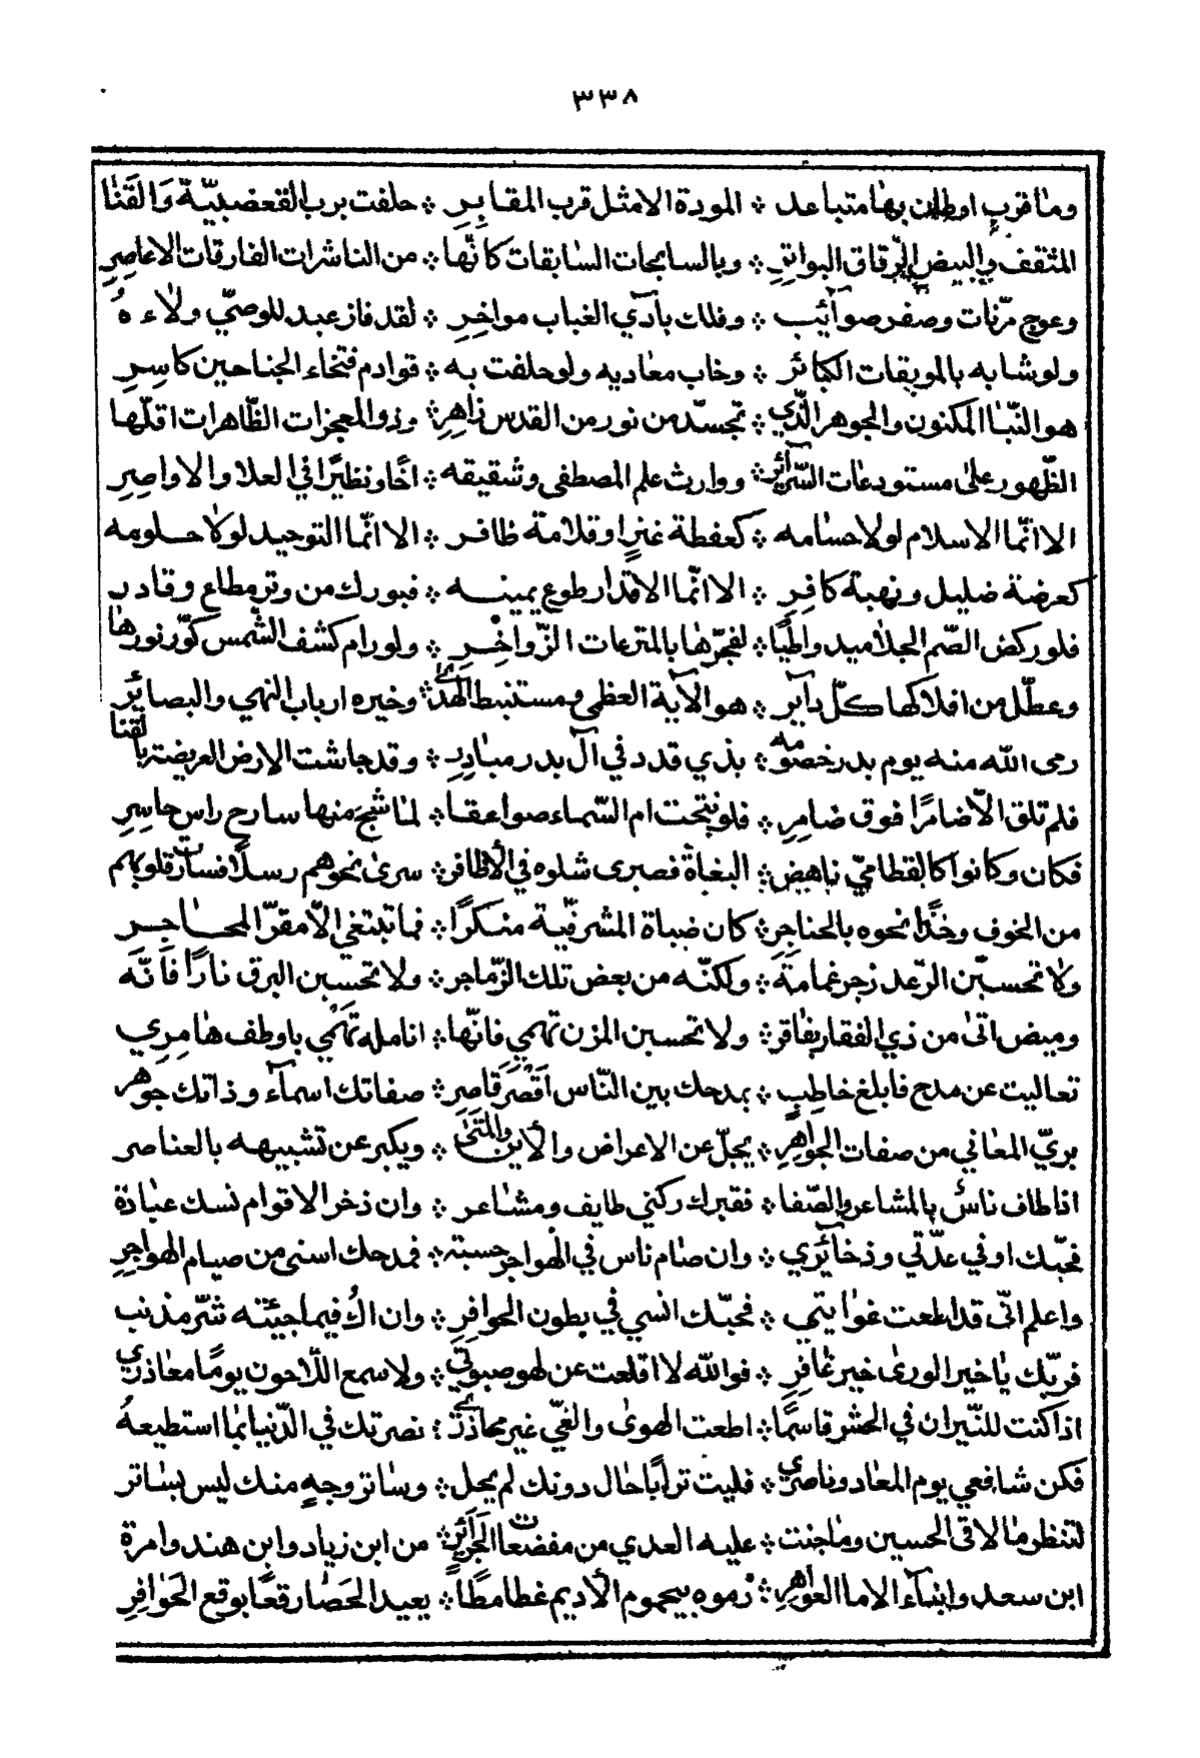 ٣٣٨
وما قرب اوطان بها متباعد ❊ المودة الا مثل قرب المقابِرِ ❊ حلفت برب القعضبيّة وَالقَنا
المثقف والبيض الرّقاق البواترِ ❊ وبالسابحات السابقات كانّها ❊ من الناشرات الفارقات الاعاصِرِ
وعوج مرّنات وصفر صوآئب ❊ وفلك بآدي العباب مواخِرِ ❊ لقد فاز عبد للوصيّ ولاءهُ
ولو شابه بالموبقات الكبائر ❊ وخاب معاديه ولو حلفت به ❊ قوادم فتخاء الجناحين كاسِرِ
هو النّبا المكنون والجوهر الّذي ❊ تجسّد من نور من القدس زاهِرِ ❊ وذو المعجزات الظّاهرات اقلّها
الظّهور على مستودعات السّرآئر ❊ ووارث علم المصطفى وشقيقه ❊ اخًا ونظيرًا في العلا والاواصِرِ
الا انّما الاسلام لولا حسامه ❊ كعفطة عنزٍ او قلامة ظافر ❊ الا انّما التوحيد لولا علومه
كعرضة ضليل ونهبة كافِرِ ❊ الا انّما الاقدار طوع يمينه ❊ فبورك من وتر مطاع وقادر
فلو ركض الصّم الجلاميد واطيًا ❊ لفجّرها بالمترعات الزّواخِرِ ❊ ولو رام كشف الشّمس كوّر نورها
وعطّل من افلاكها كلّ دآير ❊ هو الآية العظمى ومستنبط الهدى ❊ وخيره ارباب النهى والبصائِر
رمى الله منه يوم بدر خصومه ❊ بذي قدد في آل بدر مبادِرِ ❊ وقد جاشت الارض العريضة بالقنا
فلم تلق الّا ضامرًا فوق ضامِرِ ❊ فلو نتجت ام السّماء صواعقا ❊ لما شجّ منها سارح راس حاسِرِ
فكان وكانوا كالقطاميّ ناهض ❊ البغاة فصبرى شلوه في الأظافر ❊ سرى نحوهم رسلًا فسارت قلوبهم
من الخوف وخدًا نحوه بالحناجِرِ ❊ كان ضباة المشرفيّة منكرًا ❊ فما تبتغي الّا مقرّ المحاجر
ولا تحسبنّ الرّعد زجر غمامة ❊ ولكنّه من بعض تلك الزّماجر ❊ ولا تحسبن البرق نارًا فَانّه
وميض اتى من ذي الفقار بفاقر ❊ ولا تحسبن المزن تهمي فانّها ❊ انامله تَهْمي باوطف هامِري
تعاليت عن مدح فابلغ خاطِبٍ ❊ بمدحك بين النّاس اَقْصَر قَاصِرِ ❊ صفاتك اسمآء وذاتك جوهر
بريّ المعاني من صفات الجواهِرِ ❊ يجلّ عن الاعراض والأين والمَتى ❊ ويكبر عن تشبيهه بالعناصر
اذا طاف ناسٌ بالمشاعر والصّفا ❊ فقبرك ركني طايف ومشاعر ❊ وان ذخر الاقوام نسك عبادة
فحبّك اوفى عدّتي وذخآئري ❊ وان صام ناس في الهواجر حسبة ❊ فمدحك اسنى من صيام الهواجِرِ
واعلم انّى قد اطعت غوايتي ❊ فحبّك انسي في بطون الحوافِرِ ❊ وان اكُ فيما جئته شرّ مذنب
فربّك يا خير الورى خير غافِرِ ❊ فوالله لا اقلعت عن لهو صبوتي ❊ ولا سمع اللّاحون يومًا معاذري
اذا كنت للنّيران في الحشر قاسمًا ❊ اطعت الهوى والغيّ غير محاذر ❊ نصرتك في الدّنيا بما استطيعهُ
فكن شافعي يوم المعاد وناصري ❊ فليت ترابًا حال دونك لم يحل ❊ وساتر وجهٍ منك ليس بساتر
لتنظر ما لاقى الحسين وما جنت ❊ عليه العدي من مفضعات الجَرآئر ❊ من ابن زياد وابن هند وامرة
ابن سعد وابنآء الاما العواهِرِ ❊ رموه بيحموم الأديم غطامطًا ❊ يعيد الحَصٰا رقعًا بوقع الحَوافِرِ